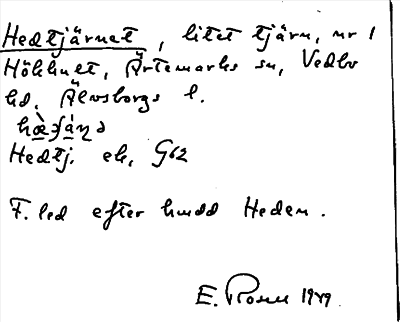 Hedtjärnet, litet tjärn, nr 1
Hökhult, Ärtemarks sn, Vedbo
hd, Älvsborgs l.
Hedtj. ek, G62
F. led efter hmdd Heden.
E. Rosell 1949.